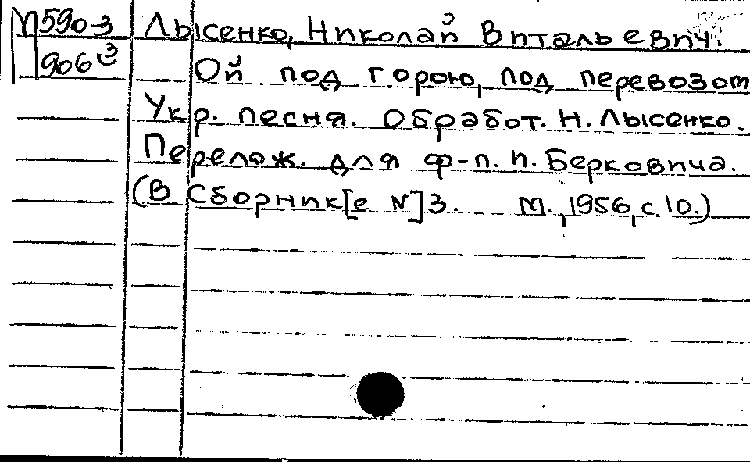 М590-3 Лысенко, Николай Витальевич.
906 Ой под горою, под перевозом
Укр. песня. Обработ. Н. Лысенко.
Перелож. для ф-п. И. Берковича.
(В Сборник[е №]3. М., 1956, с. 10.)